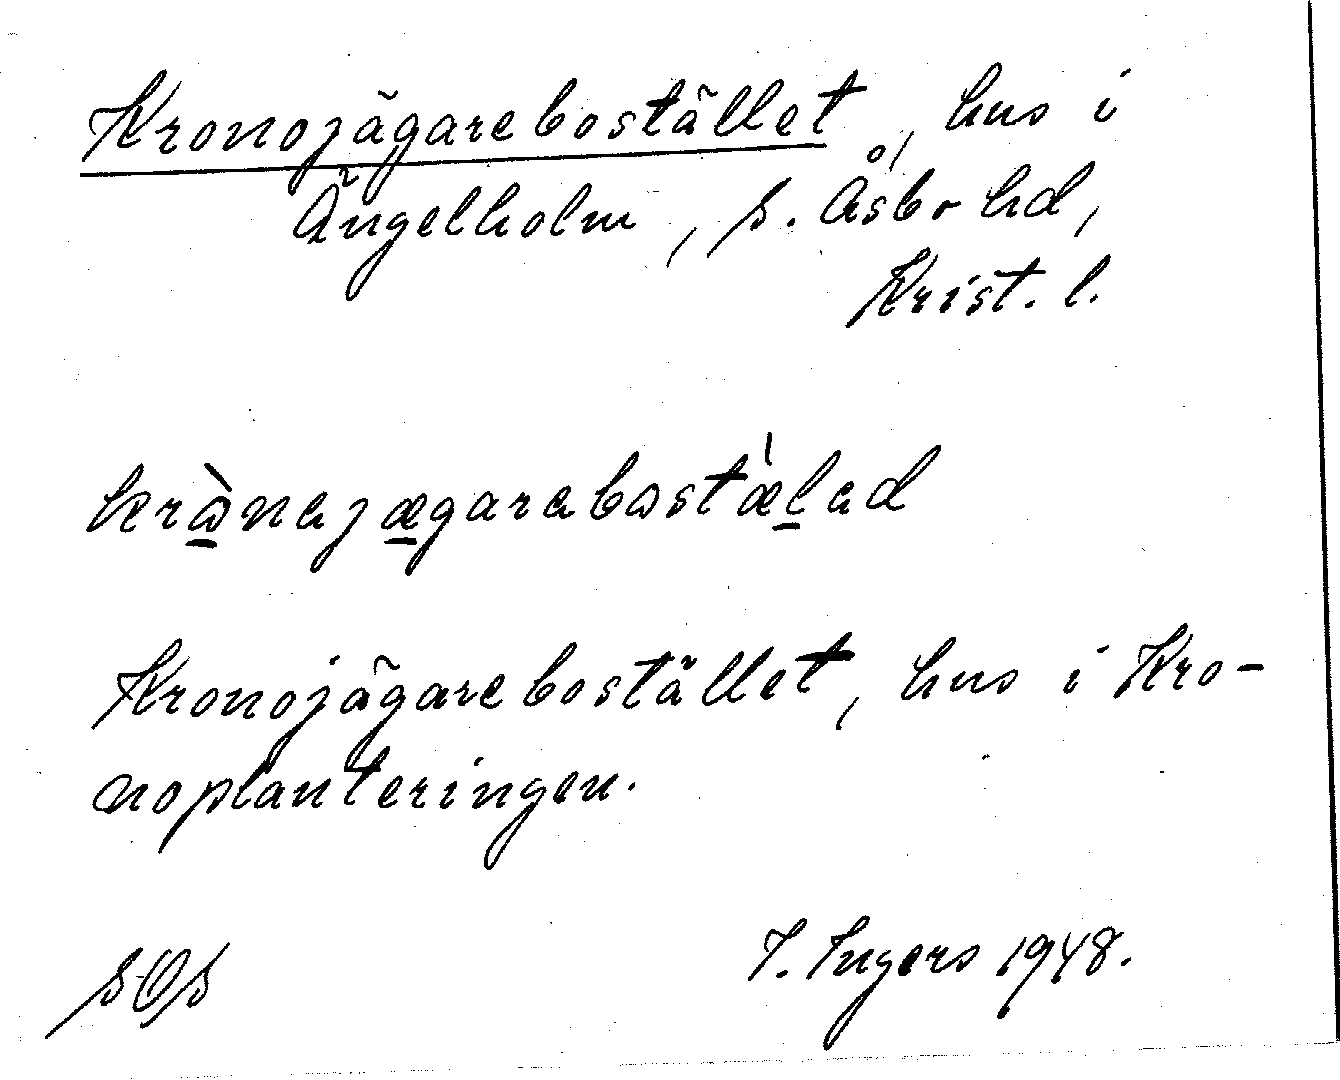 Kronojägarebostället, hus i
Ängelholm, S. Åsbo hd,
Krist. l.
krɷ̠̀nejæ̠garebɷstæ̍l̠ed
Kronojägarebostället, hus i Kro-
noplanteringen.
SOS I. Ingers 1948.